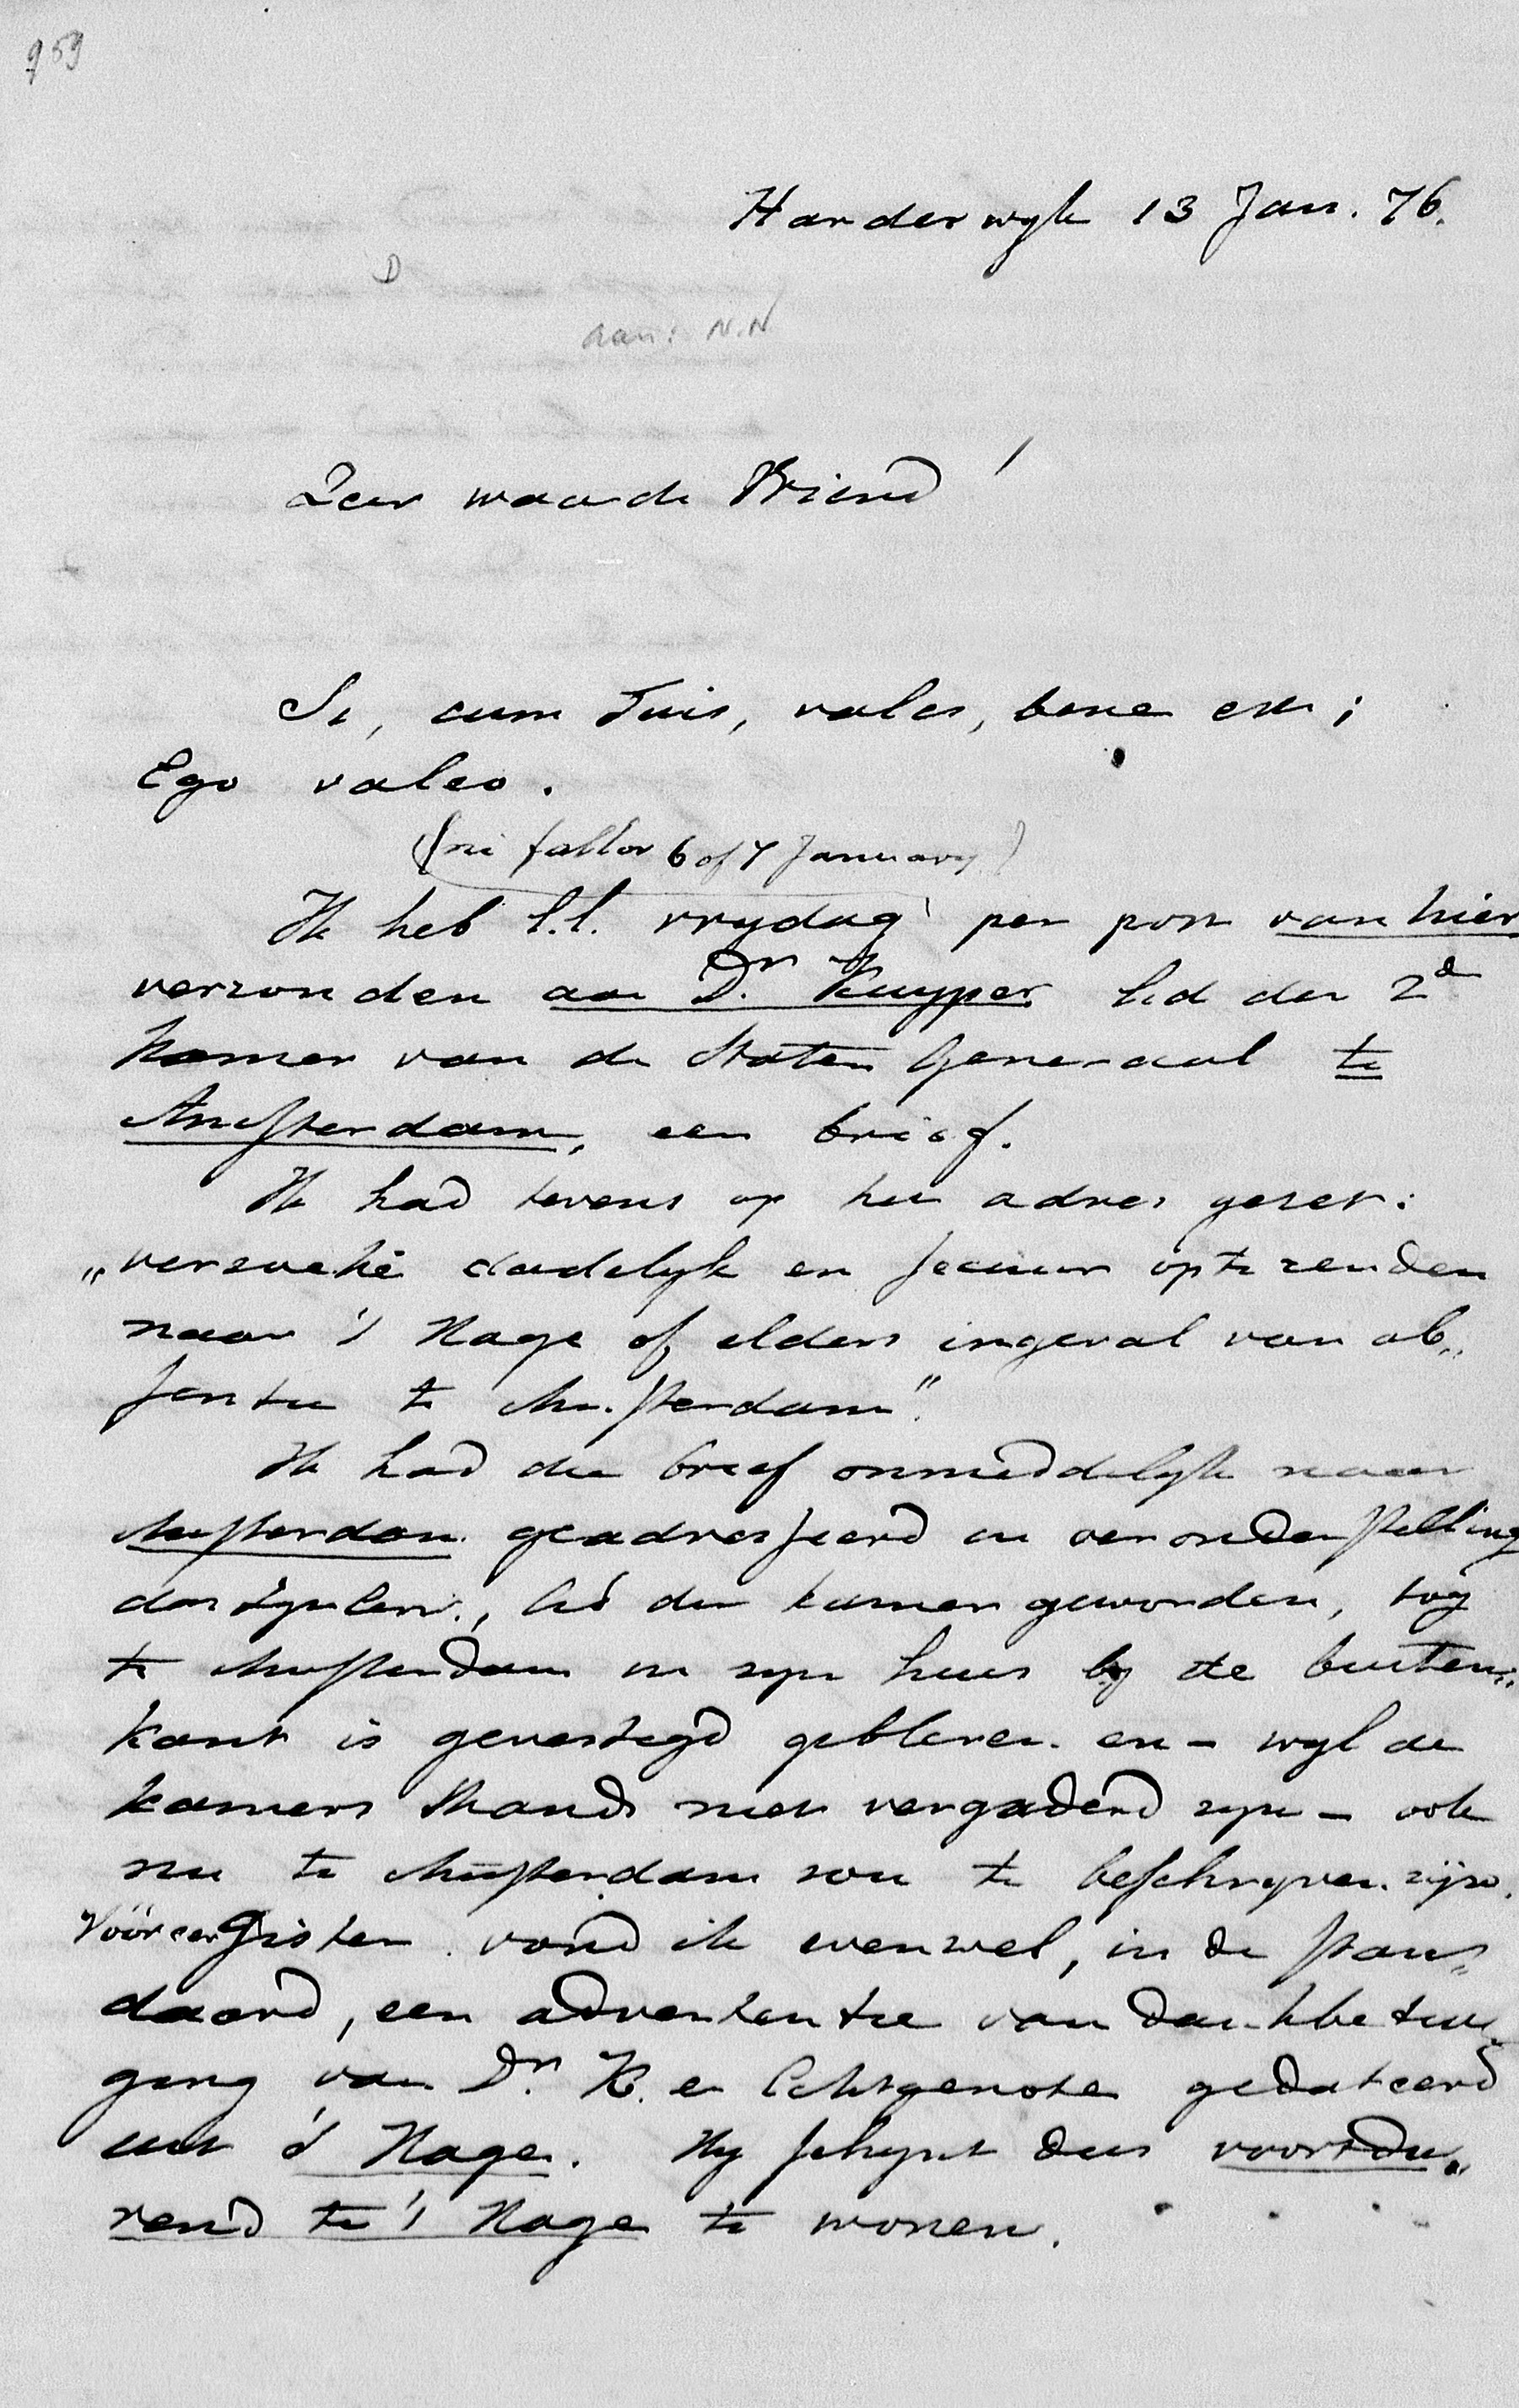 959
Harderwyk 13 Jan. 76.
D
aan: N.N.
Zeer waarde Vriend!
Si, cum Tuis, vales, bene est;
Ego valeo.
(ni fallor 6 of 7 January)
Ik heb l.l. vrydag per post van hier
verzonden aan Dr. Kuyper lid der 2de
Kamer van de Staten Generaal te
Amsterdam, een brief.
Ik had tevens op het adres gezet:
„verzoeke dadelyk en secuur opte zenden
naar 's Hage of elders ingeval van ab„
sentie te Amsterdam".
Ik had die brief onmiddelyk naar
Amsterdam geadresseerd in veronderstelling
dat zyn Eerw., lid der kamer geworden, tog
te Amsterdam in zyn huis by de buiten„
kant is gevestigd gebleven en – wyl de
kamers thands niet vergaderd zyn – ook
nu te Amsterdam zou te beschryven zijn.
Vóóreergisteren vond ik evenwel, in de stan„
daard, een advertentie van dankbetui„
ging van Dr. K. en Echtgenote gedateerd
uit 's Hage. Hy schynt dus voortdu„
rend te 's Hage te wonen.